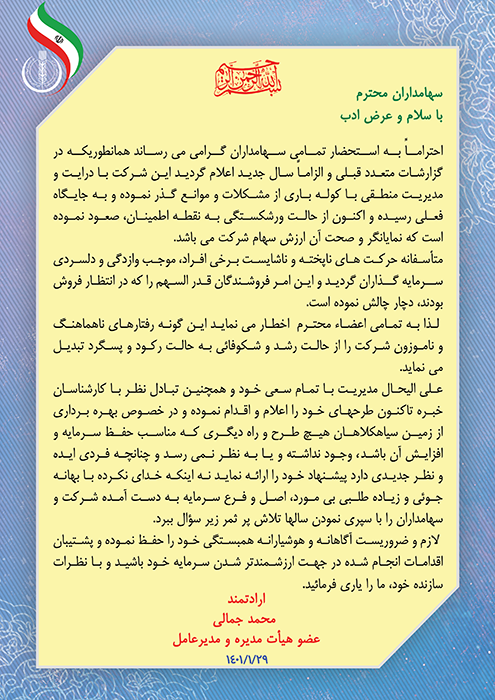 بسم الله الرحمن الرحیم
سهامداران محترم
با سلام و عرض ادب
احتراماً به استحضار تمامی سهامداران گرامی می رساند همانطوریکه در
گزارشات متعدد قبلی و الزاماً سال جدید اعلام گردید این شرکت با درایت و
مدیریت منطقی با کوله باری از مشکلات و موانع گذر نموده و به جایگاه
فعلی رسیده و اکنون از حالت ورشکستگی به نقطه اطمینان، صعود نموده
است که نمایانگر و صحت آن ارزش سهام شرکت می باشد.
متأسفانه حرکت های ناپخته و ناشایست برخی افراد، موجب وازدگی و دلسردی
سرمایه گذاران گردید و این امر فروشندگان قدر السهم را که در انتظار فروش
بودند، دچار چالش نموده است.
لذا به تمامی اعضاء محترم اخطار می نماید این گونه رفتارهای ناهماهنگ
و ناموزون شرکت را از حالت رشد و شکوفائی به حالت رکود و پسگرد تبدیل
می نماید.
علی الیحال مدیریت با تمام سعی خود و همچنین تبادل نظر با کارشناسان
خبره تاکنون طرحهای خود را اعلام و اقدام نموده و در خصوص بهره برداری
از زمین سیاهکلاهان هیچ طرح و راه دیگری که مناسب حفظ سرمایه و
افزایش آن باشد، وجود نداشته و یا به نظر نمی رسد و چنانچه فردی ایده
و نظر جدیدی دارد پیشنهاد خود را ارائه نماید نه اینکه خدای نکرده با بهانه
جوئی و زیاده طلبی بی مورد، اصل و فرع سرمایه به دست آمده شرکت و
سهامداران را با سپری نمودن سالها تلاش پر ثمر زیر سؤال ببرد.
لازم و ضروریست آگاهانه و هوشیارانه همبستگی خود را حفظ نموده و پشتیبان
اقدامات انجام شده در جهت ارزشمندتر شدن سرمایه خود باشید و با نظرات
سازنده خود، ما را یاری فرمائید.
ارادتمند
محمد جمالی
عضو هیأت مدیره و مدیرعامل
۱۴۰۱/۱/۲۹